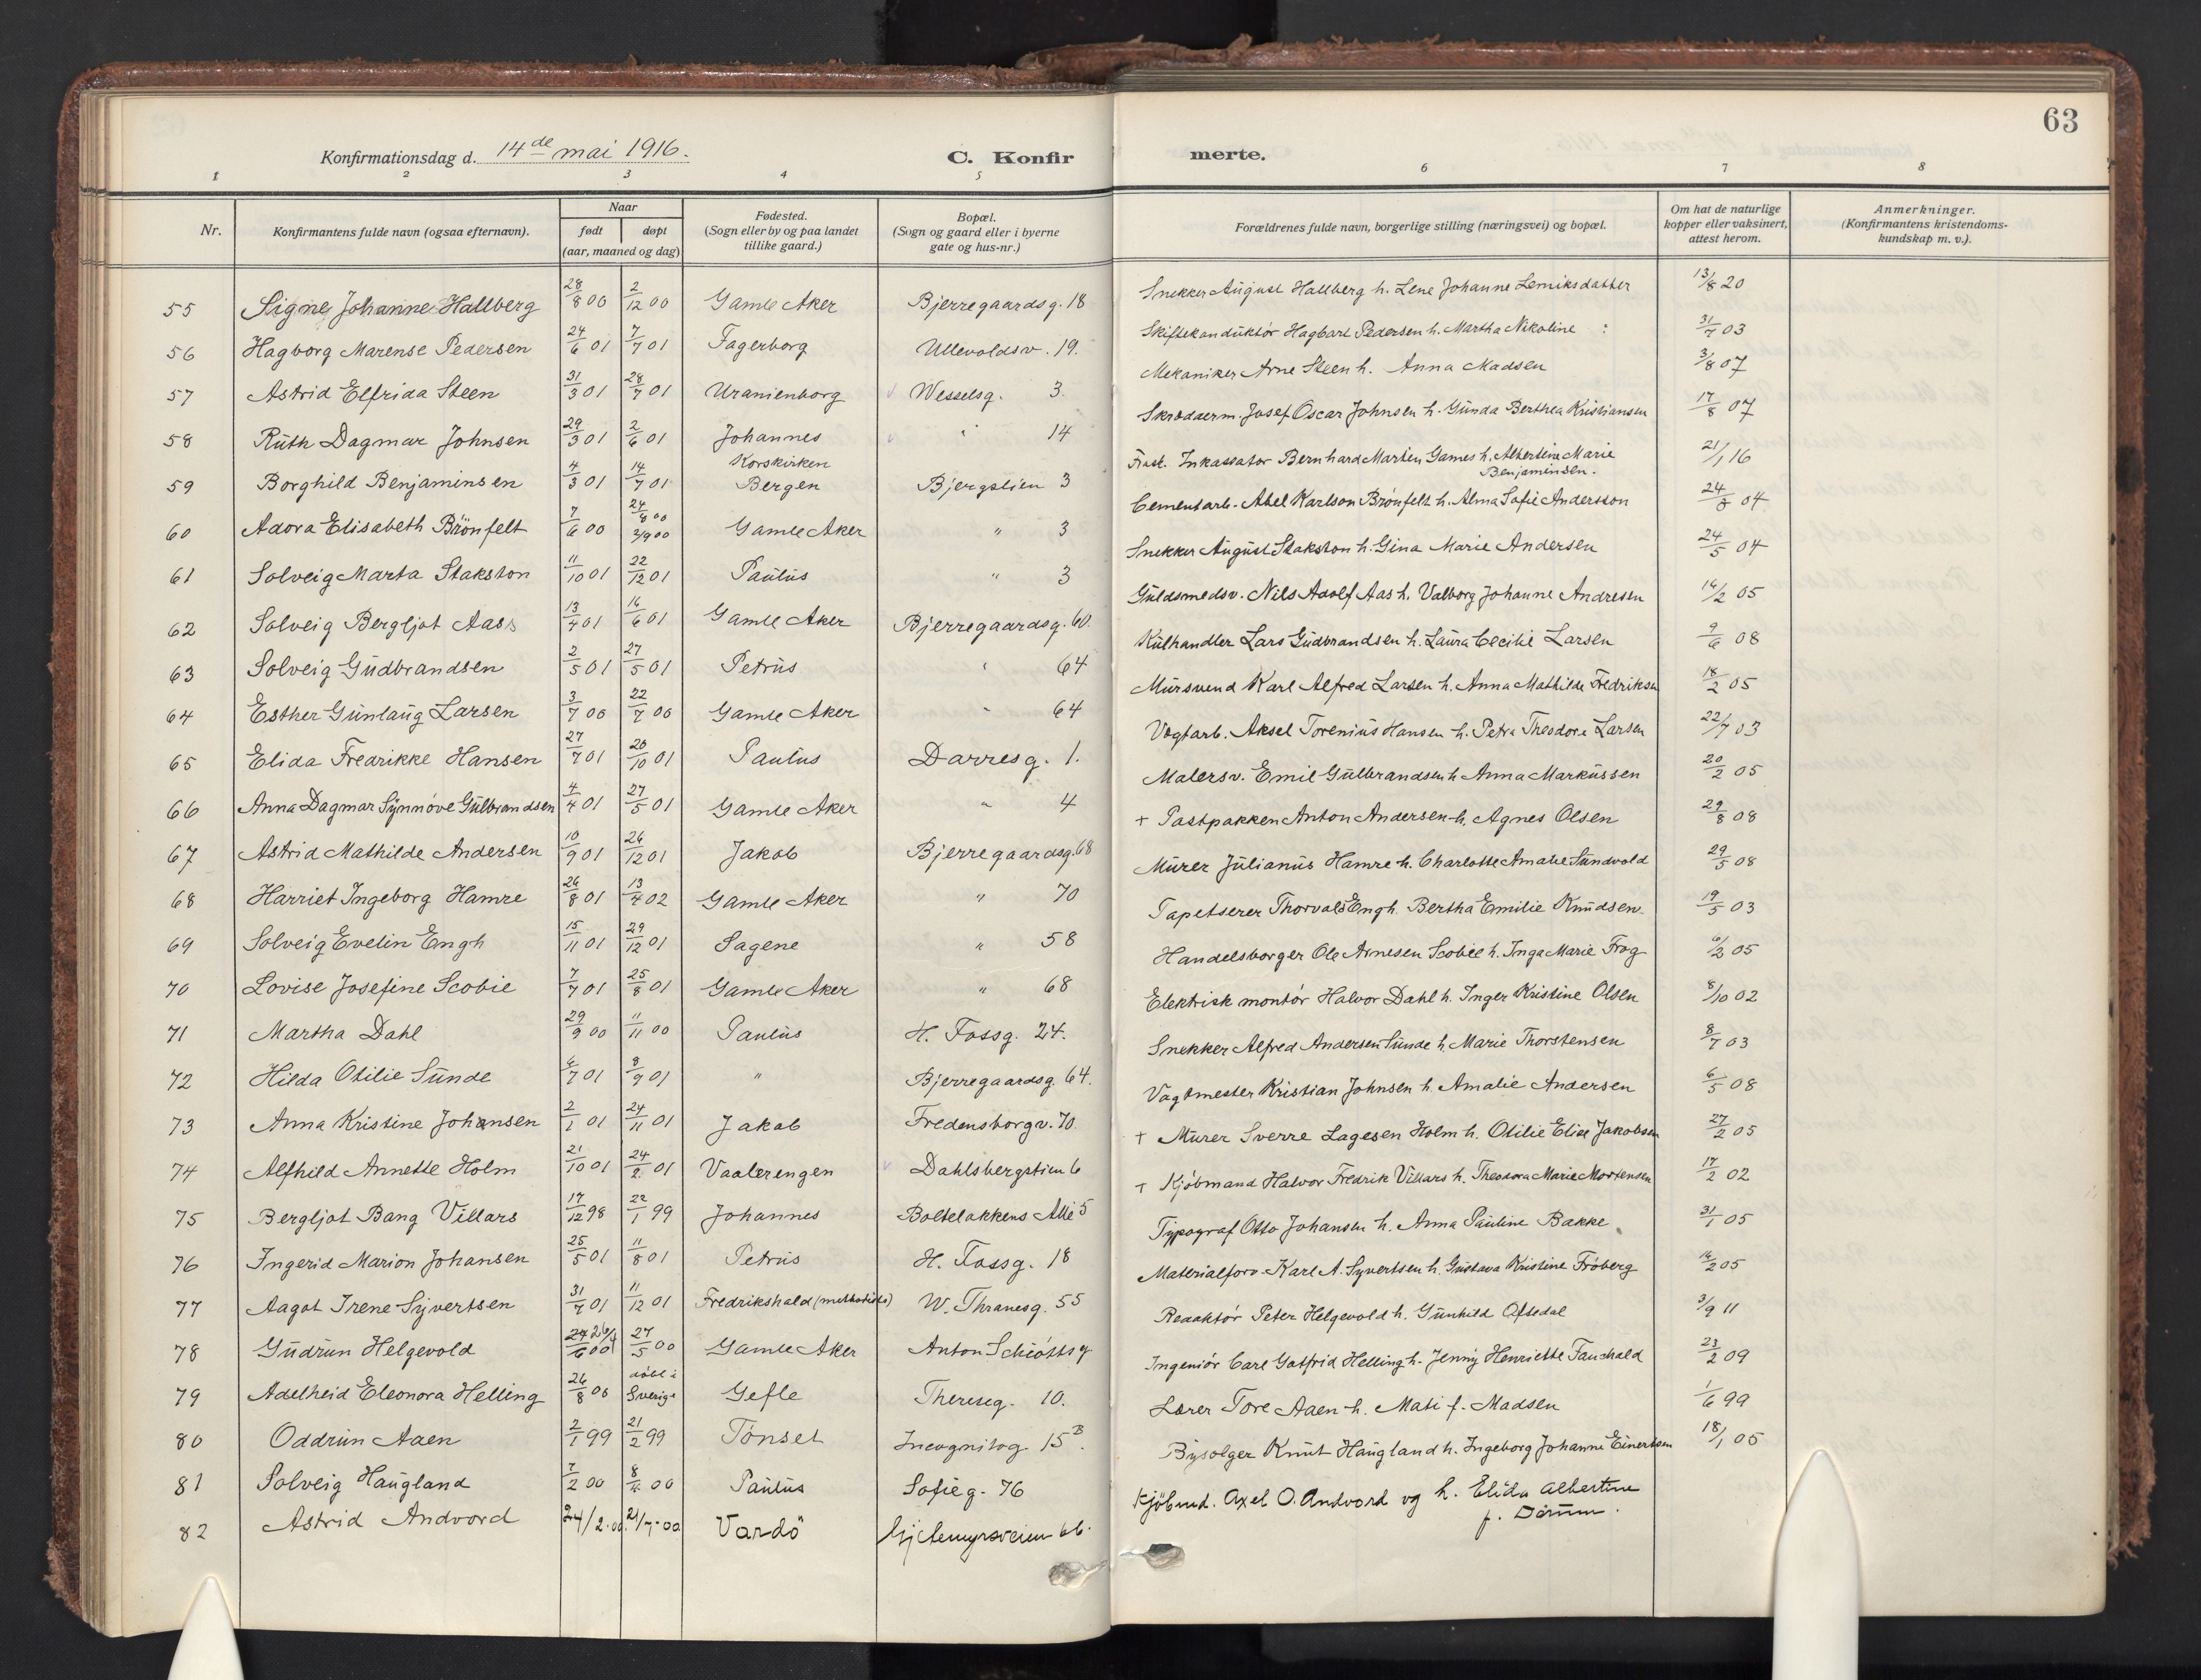 63
Konfirmationsdag d. 14de mai 1916.
C. Konfirmerte.
1 2 3 4 5 6 7 8
Nr. Konfirmantens fulde navn (ogsaa efternavn). Naar født døpt (aar, maaned og dag) Fødested. (Sogn eller by og paa landet tillike gaard.) Bopæl. (Sogn og gaard eller i byerne gate og hus-nr.) Forældrenes fulde navn, borgerlige stilling (næringsvei) og bopæl. Om hat de naturlige kopper eller vaksinert, attest herom. Anmerkninger. (Konfirmantens kristendoms-kundskap m. v.).
55 Signe Johanne Hallberg 28/8 00 2/12 00 Gamle Aker Bjerregaardsg. 18 Snekker August Hallberg h. Lene Johanne 13/8 20
56 Hagborg Marense Pedersen 24/6 01 7/7 01 Fagerborg Ullevoldsv. 19. Skiftekonduktør Hagbart Pedersen h. Martha Nikoline 31/7 03
57 Astrid Elfrida Steen 31/3 01 28/7 01 Uranienborg Wesselsg. 3. Mekaniker Arne Steen h. Anna Madsen 3/8 07
58 Ruth Dagmar Johnsen 29/3 01 2/6 01 Johannes " 14 Skrædderm. Josef Oscar Johnsen h. Gunda Berthea Kristiansen 17/8 07
59 Borghild Benjaminsen 4/3 01 14/7 01 Korskirken Bergen Bjergstien 3 Frast. Inkassator Bernhard Martin Games h. Albertine Marie Benjaminsen. 21/1 16
60 Adora Elisabeth Brönfelt 7/6 00 24/8 00 2/9 00 Gamle Aker " 3 Cementarb. Abel Karlson Brönfelt h. Alma Sofie Andersson 24/8 04
61 Solveig Marta Stakston 11/10 01 22/12 01 Paulus " 3 Snekker August Stakston h. Gina Marie Andersen 24/5 04
62 Solveig Bergljot Aass 13/4 01 16/6 01 Gamle Aker Bjerregaardsg. 60. Guldsmedsv. Nils Adolf Aas h. Valborg Johanne Andresen 14/2 05
63 Solveig Gudbrandsen 2/5 01 27/5 01 Petrus " 64 Kulhandler Lars Gudbrandsen h. Laura Cecilie Larsen 9/6 08
64 Esther Gunlaug Larsen 3/7 00 22/7 00 Gamle Aker " 64 Mursvend Karl Alfred Larsen h. Anna Mathilde Fredriksen 18/2 05
65 Elida Fredrikke Hansen 27/7 01 20/10 01 Paulus Darresg. 1. Vogtarb. Aksel Torenius Hansen h. Petra Theodora Larsen 22/7 03
66 Anna Dagmar Synnöve Gulbrandsen 4/4 01 27/5 01 Gamle Aker " 4 Malersv. Emil Gulbrandsen h. Anna Markussen 20/2 05
67 Astrid Mathilde Andersen 10/9 01 26/12 01 Jakob Bjerregaardsg. 68 + Postpakken Anton Andersen h. Agnes Olsen 29/8 08
68 Harriet Ingeborg Hamre 26/8 01 13/4 02 Gamle Aker " 70 Murer Julianus Hamre h. Charlotte Amalie Sundvold 29/5 08
69 Solveig Evelin Engh 15/11 01 29/12 01 Sagene " 58 Tapetserer Thorvald Engh. Bertha Emilie Knudsen. 19/5 03
70 Lovise Josefine Scobie 7/7 01 25/8 01 Gamle Aker " 68 Handelsborger Ole Arnesen Scobie h. Inga Marie Frog 6/2 05
71 Martha Dahl 29/9 00 11/11 00 Paulus H. Fossg. 24. Elektrisk montör Halvor Dahl h. Inger Kristine Olsen 8/10 02
72 Hilda Otilie Sunde 6/7 01 8/9 01 " Bjerregaardsg. 64. Snekker Alfred Andersen Sunde h. Marie Thorstensen 8/7 03
73 Anna Kristine Johansen 2/1 01 24/11 01 Jakob Fredensborgv. 70. Vagtmester Kristian Johnsen h. Amalie Andersen 6/5 08
74 Alfhild Annette Holm 21/10 01 24/2 01 Vaalerengen Dahlsbergstien 6 + Murer Sverre Lagesen Holm h. Otilie Elise Jakobsen 27/2 05
75 Bergljot Bang Villars 17/12 98 22/1 99 Johannes Boltelökkens Allé 5 + Kjöbmand Halvor Fredrik Villars h. Theodora Marie Mortensen 17/2 02
76 Ingerid Marion Johansen 25/5 01 11/8 01 Petrus H. Fossg. 18 Typograf Otto Johansen h. Anna Pauline Bakke. 31/1 05
77 Aagot Irene Syvertsen 31/7 01 11/12 01 Fredrikshald (methodist) W. Thranesg. 55 Materialforv. Karl A. Syvertsen h. Gustava Kristine Fröberg 14/2 05
78 Gudrun Helgevold 26/4 00 27/5 00 Gamle Aker Anton Schiötts g Redaktör Peter Helgevold h. Gunhild Oftedal 3/9 11
79 Adelheid Eleonora Helling 26/8 00 döbt i Sverige Gefle Theresg. 10. Ingeniör Carl Gotfrid Helling h. Jenny Henriette Fauchald 23/2 09
80 Oddrun Aaen 2/1 99 21/2 99 Tönset Incognitog 15B. Lærer Tore Aaen h. Mati f. Madsen 1/6 99
81 Solveig Haugland 7/2 00 8/4 00 Paulus Sofieg. 76 Bysælger Knut Haugland h. Ingeborg Johanne Einertsen 18/1 05
82 Astrid Andvord 24/2.00. 21/7.00 Vardö Gjetemyrsveien 66. Kjöbmd. Axel O. Andvord og h. Elida Albertine f. Dørum.